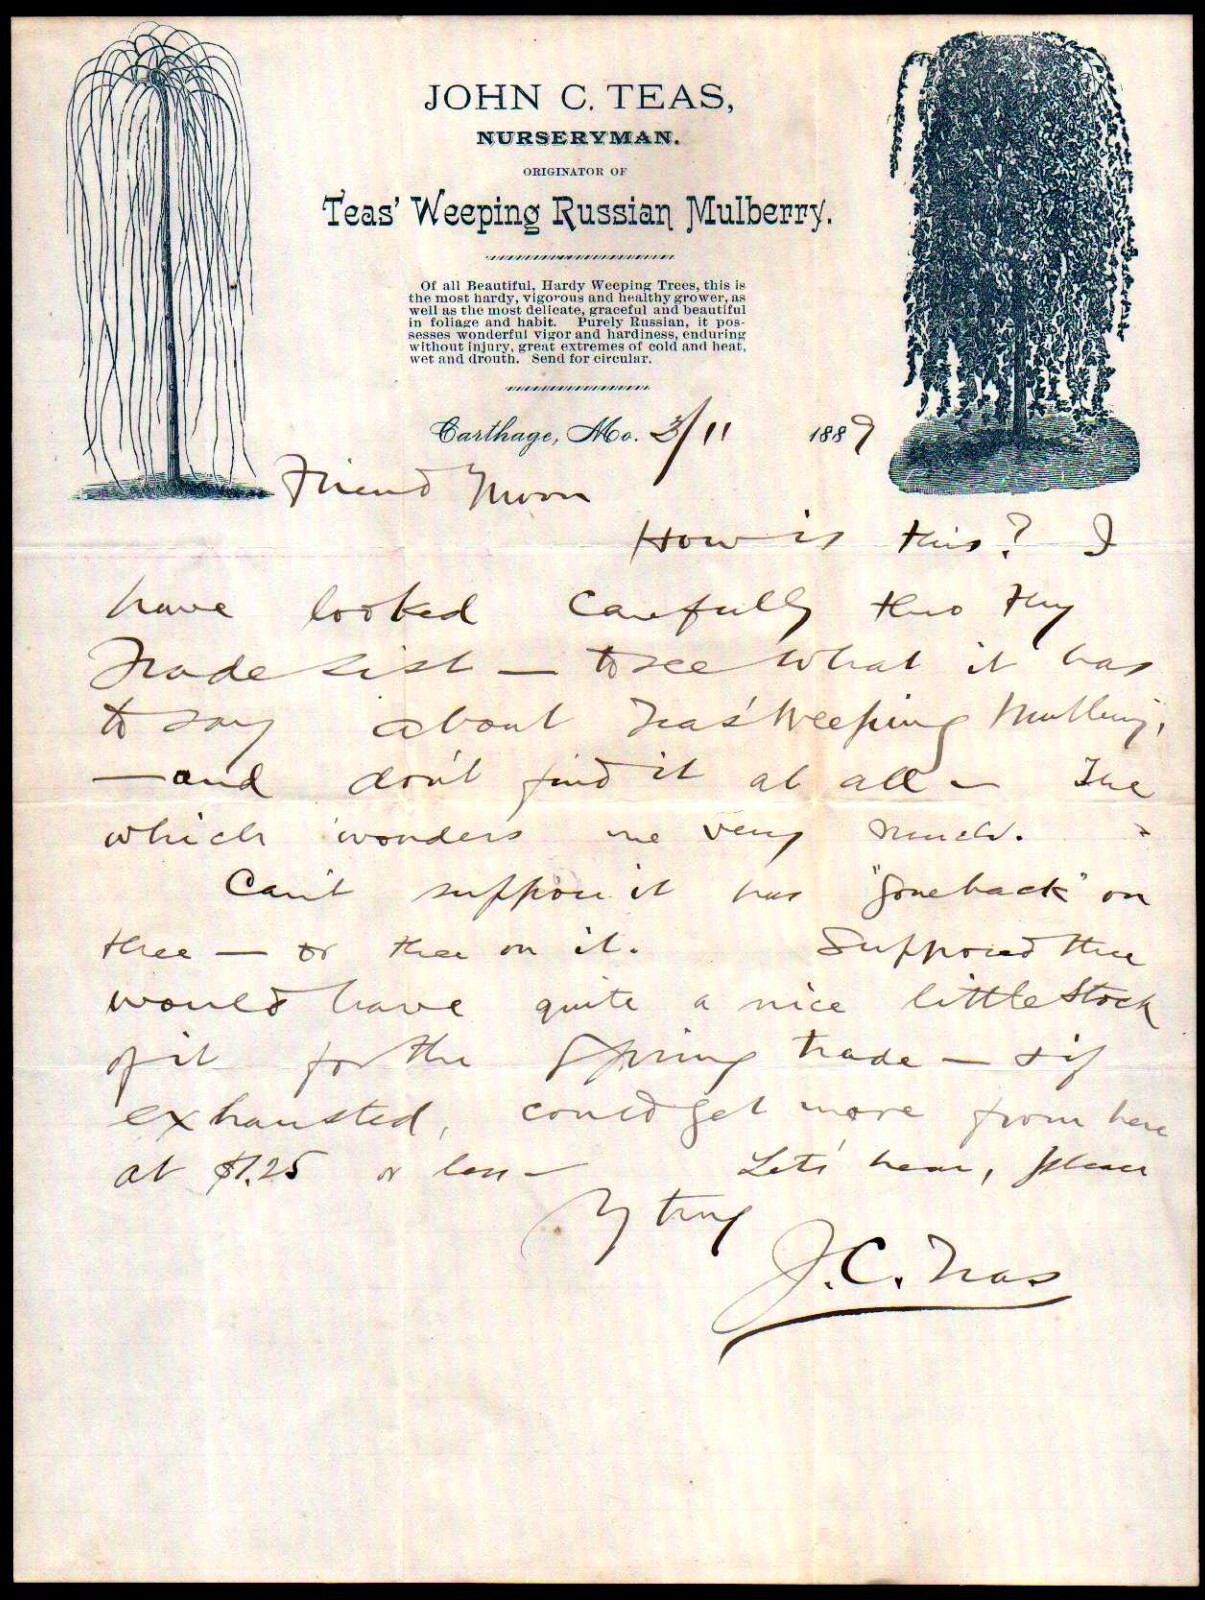 JOHN C. TEAS,
NURSERYMAN.
ORIGINATOR OF
Teas' Weeping Russian Mulberry.
Of all Beautiful, Hardy Weeping Trees, this is
the most hardy, vigorous and healthy grower, as
well as the most delicate, graceful and beautiful
in foliage and habit. Purely Russian, it pos-
sesses wonderful vigor and hardiness, enduring
without injury, great extremes of cold and heat,
wet and drouth. Send for circular.
Carthage, Mo. 3/11 1889
Friend Moon
How is this? I
have looked carefully thro thy
Trade List — to see what it has
to say about Teas' Weeping Mulberry,
— and don't find it at all — The
which wonders me very much.
Can't suppose it has "gone back" on
thee — or thee on it. Supposed thee
would have quite a nice little stock
of it for the Spring trade — & if
exhausted, could get more from here
at $1.25 or less — Let's hear, please
truly
J. C. Teas